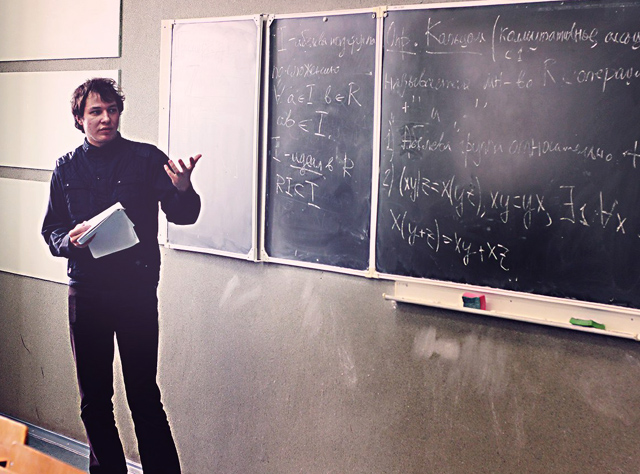 I - абелева подгруппа
по сложению
∀ a∈I b∈R
ab∈I.
I - идеал в R
RI⊂I
Опр. Кольцом (коммутативные,
с 1
называется мн-во R с операц
"+" и "·"
1) Абелева группа относительно +
2) (xy)z=x(yz), xy=yx, ∃1 ∀x
x(y+z)=xy+xz